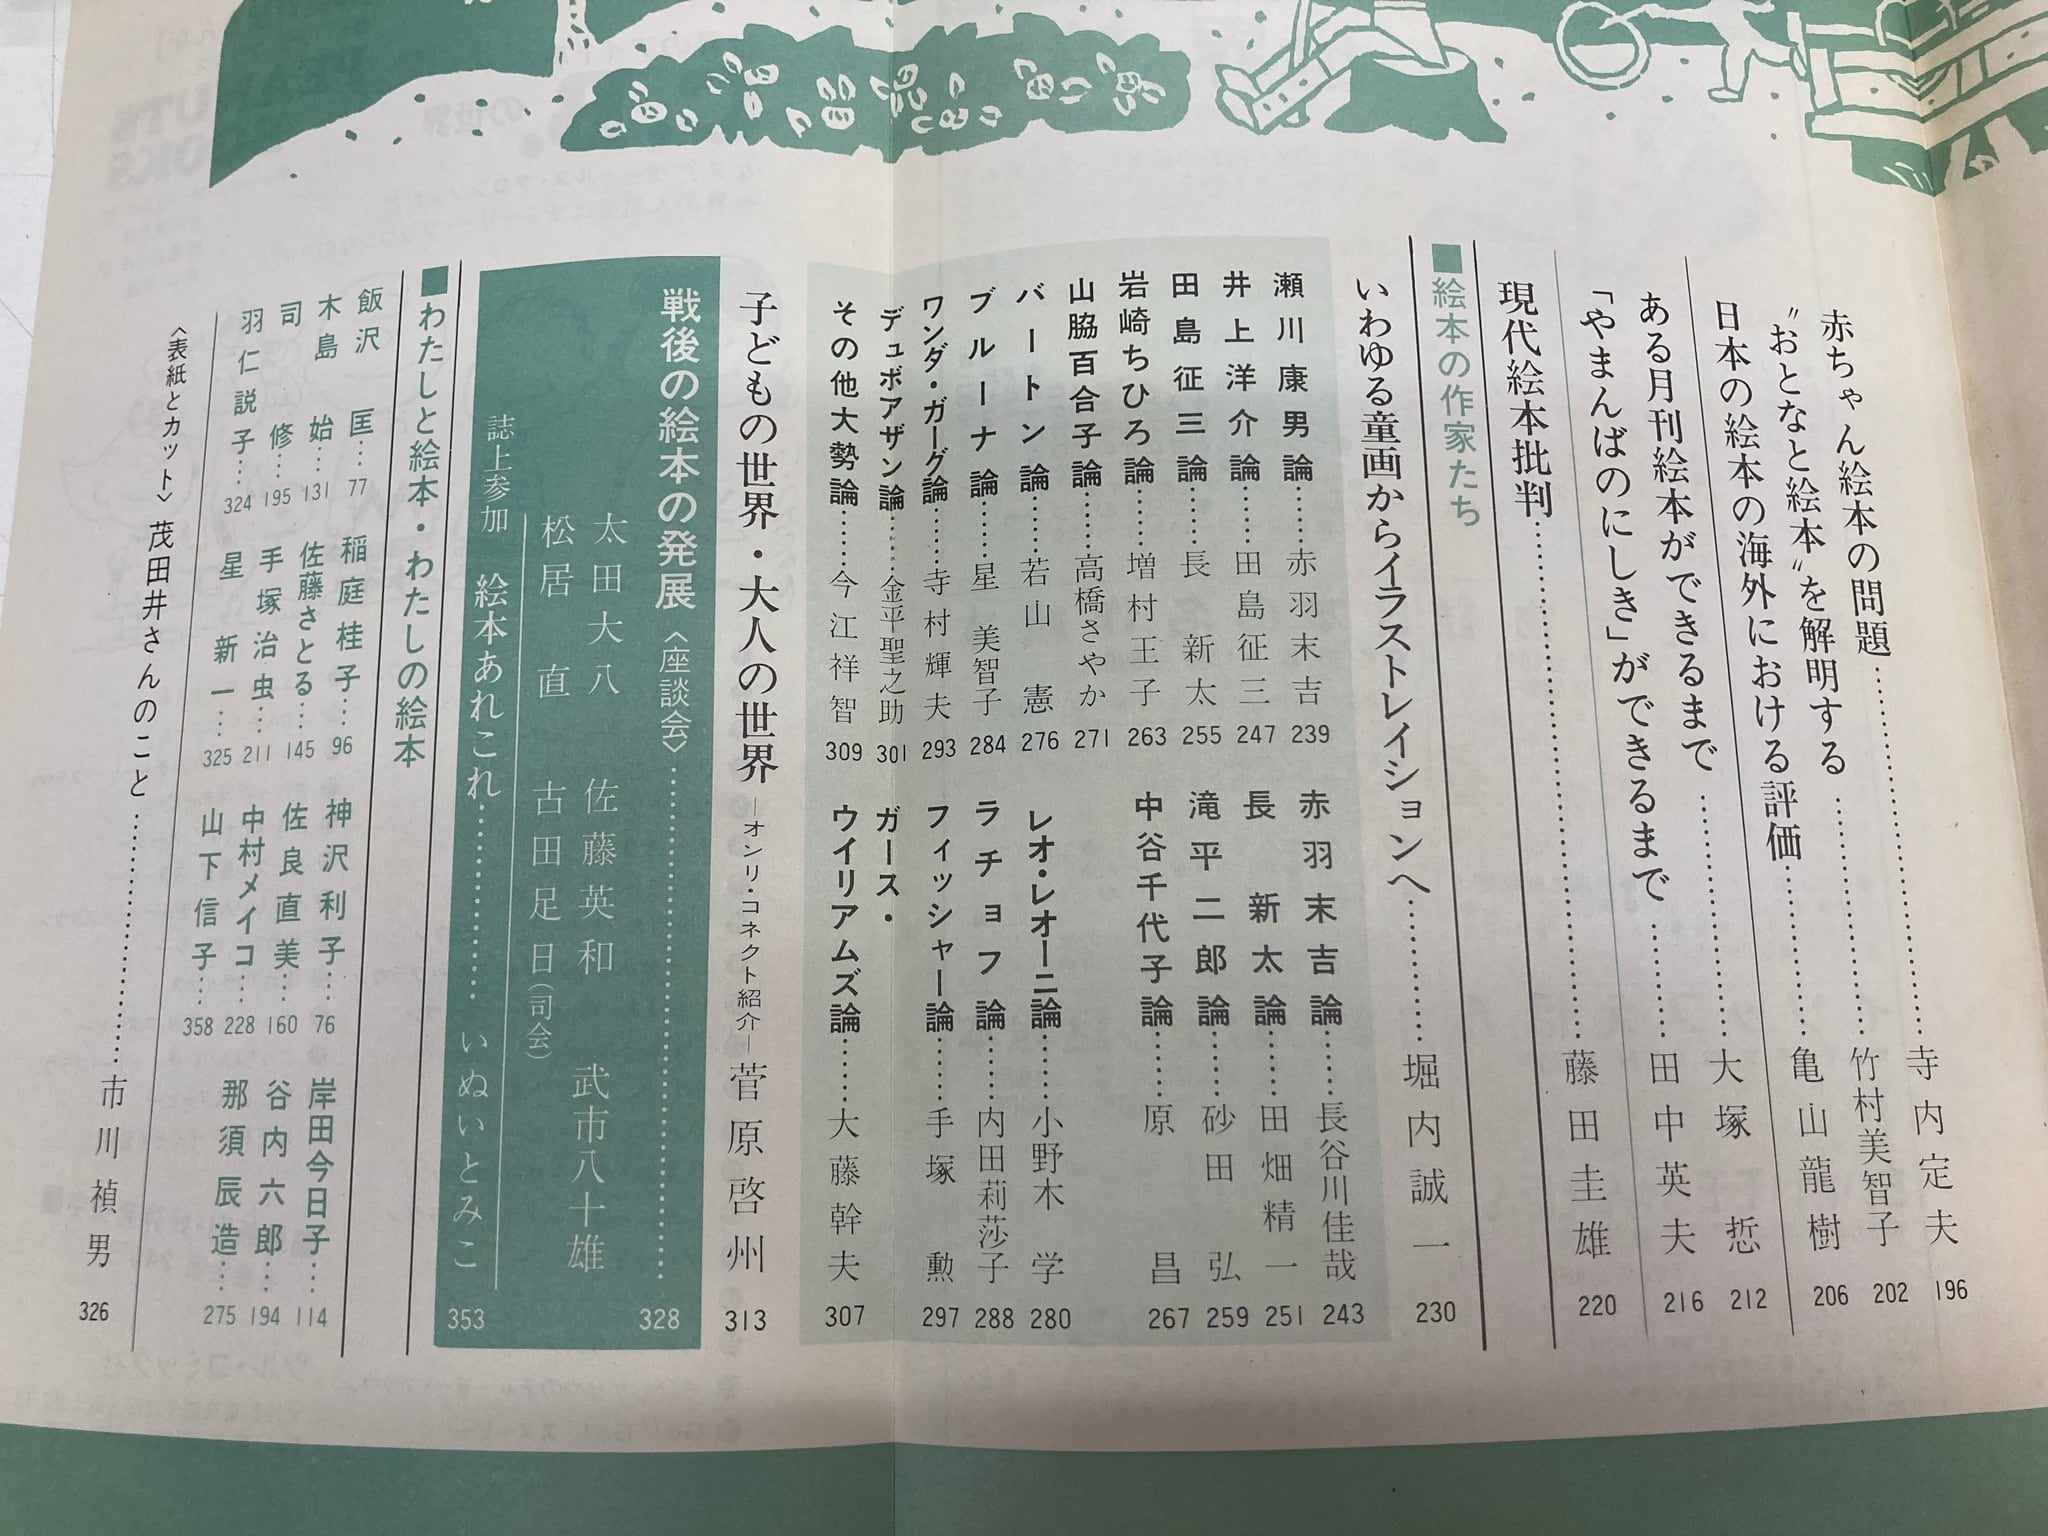 赤ちゃん絵本の問題……寺内定夫 196
"おとなと絵本"を解明する……竹村美智子 202
日本の絵本の海外における評価……亀山龍樹 206
ある月刊絵本ができるまで……大塚 悊 212
「やまんばのにしき」ができるまで……田中英夫 216
現代絵本批判……藤田圭雄 220
■絵本の作家たち
いわゆる童画からイラストレイションへ……堀内誠一 230
瀬川康男論……赤羽末吉 239
赤羽末吉論……長谷川佳哉 243
井上洋介論……田島征三 247
長新太論……田畑精一 251
田島征三論……長新太 255
滝平二郎論……砂田弘 259
岩崎ちひろ論……増村王子 263
中谷千代子論……原昌 267
山脇百合子論……高橋さやか 271
バートン論……若山憲 276
レオ・レオーニ論……小野木学 280
ブルーナ論……星美智子 284
ラチョフ論……内田莉莎子 288
ワンダ・ガーグ論……寺村輝夫 293
フィッシャー論……手塚勲 297
デュボアザン論……金平聖之助 301
ガース・ウイリアムズ論……大藤幹夫 307
その他大勢論……今江祥智 309
子どもの世界・大人の世界―オンリ・コネクト紹介―菅原啓州 313
戦後の絵本の発展〈座談会〉……328
太田大八 佐藤英和 武市八十雄
松居 直 古田足日(司会)
誌上参加 絵本あれこれ……いぬいとみこ 353
■わたしと絵本・わたしの絵本
飯沢 匡…77 稲庭桂子…96 神沢利子…76 岸田今日子…114
木島 始…131 佐藤さとる…145 佐良直美…160 谷内六郎…194
司 修…195 手塚治虫…211 中村メイコ…228 那須辰造…275
羽仁説子…324 星 新一…325 山下信子…358
〈表紙とカット〉茂田井さんのこと……市川禎男 326